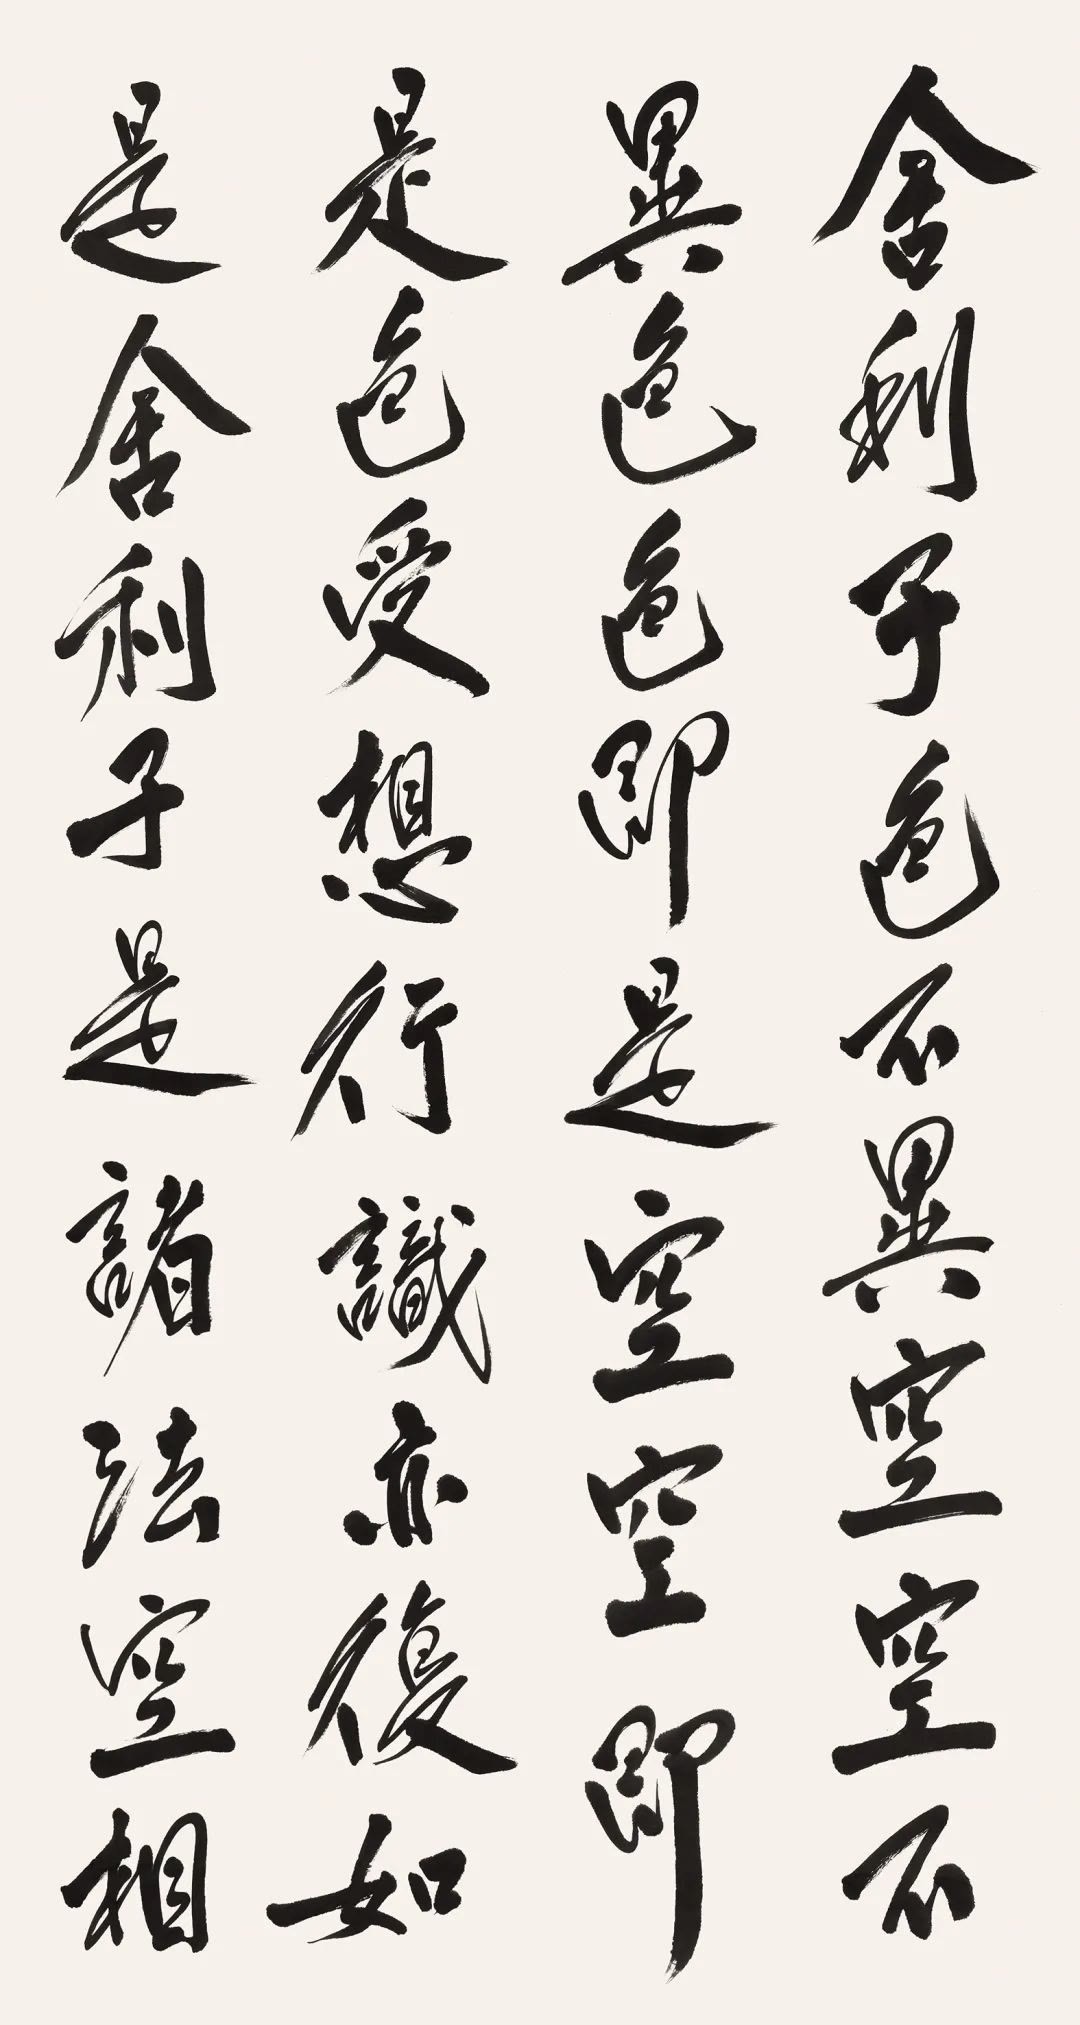 舍利子色不異空空不
異色色即是空空即
是色受想行識亦復如
是舍利子是諸法空相